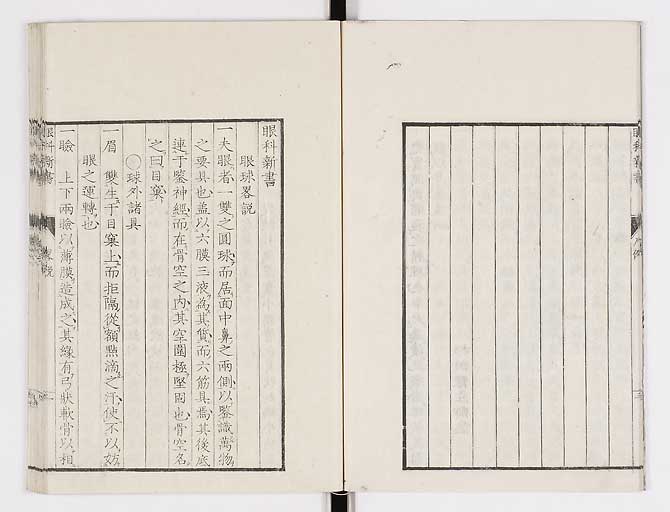 眼科新書
眼科新書
眼球畧説
一夫眼者一雙之圓球而居面中鼻之兩側以鑒識萬物
之要具也盖以六膜三液為其質而六筋具焉其後底
連于鑒神經而在骨空之内其空圍極堅固也骨空名
之曰目窠
〇球外諸具
一眉 雙生于目窠上而拒隔從額㸃滴之汗使不以妨
眼之運轉也
一瞼 上下兩瞼以薄膜造成之其縁有弓狀軟骨以相
眼科新書
畧説